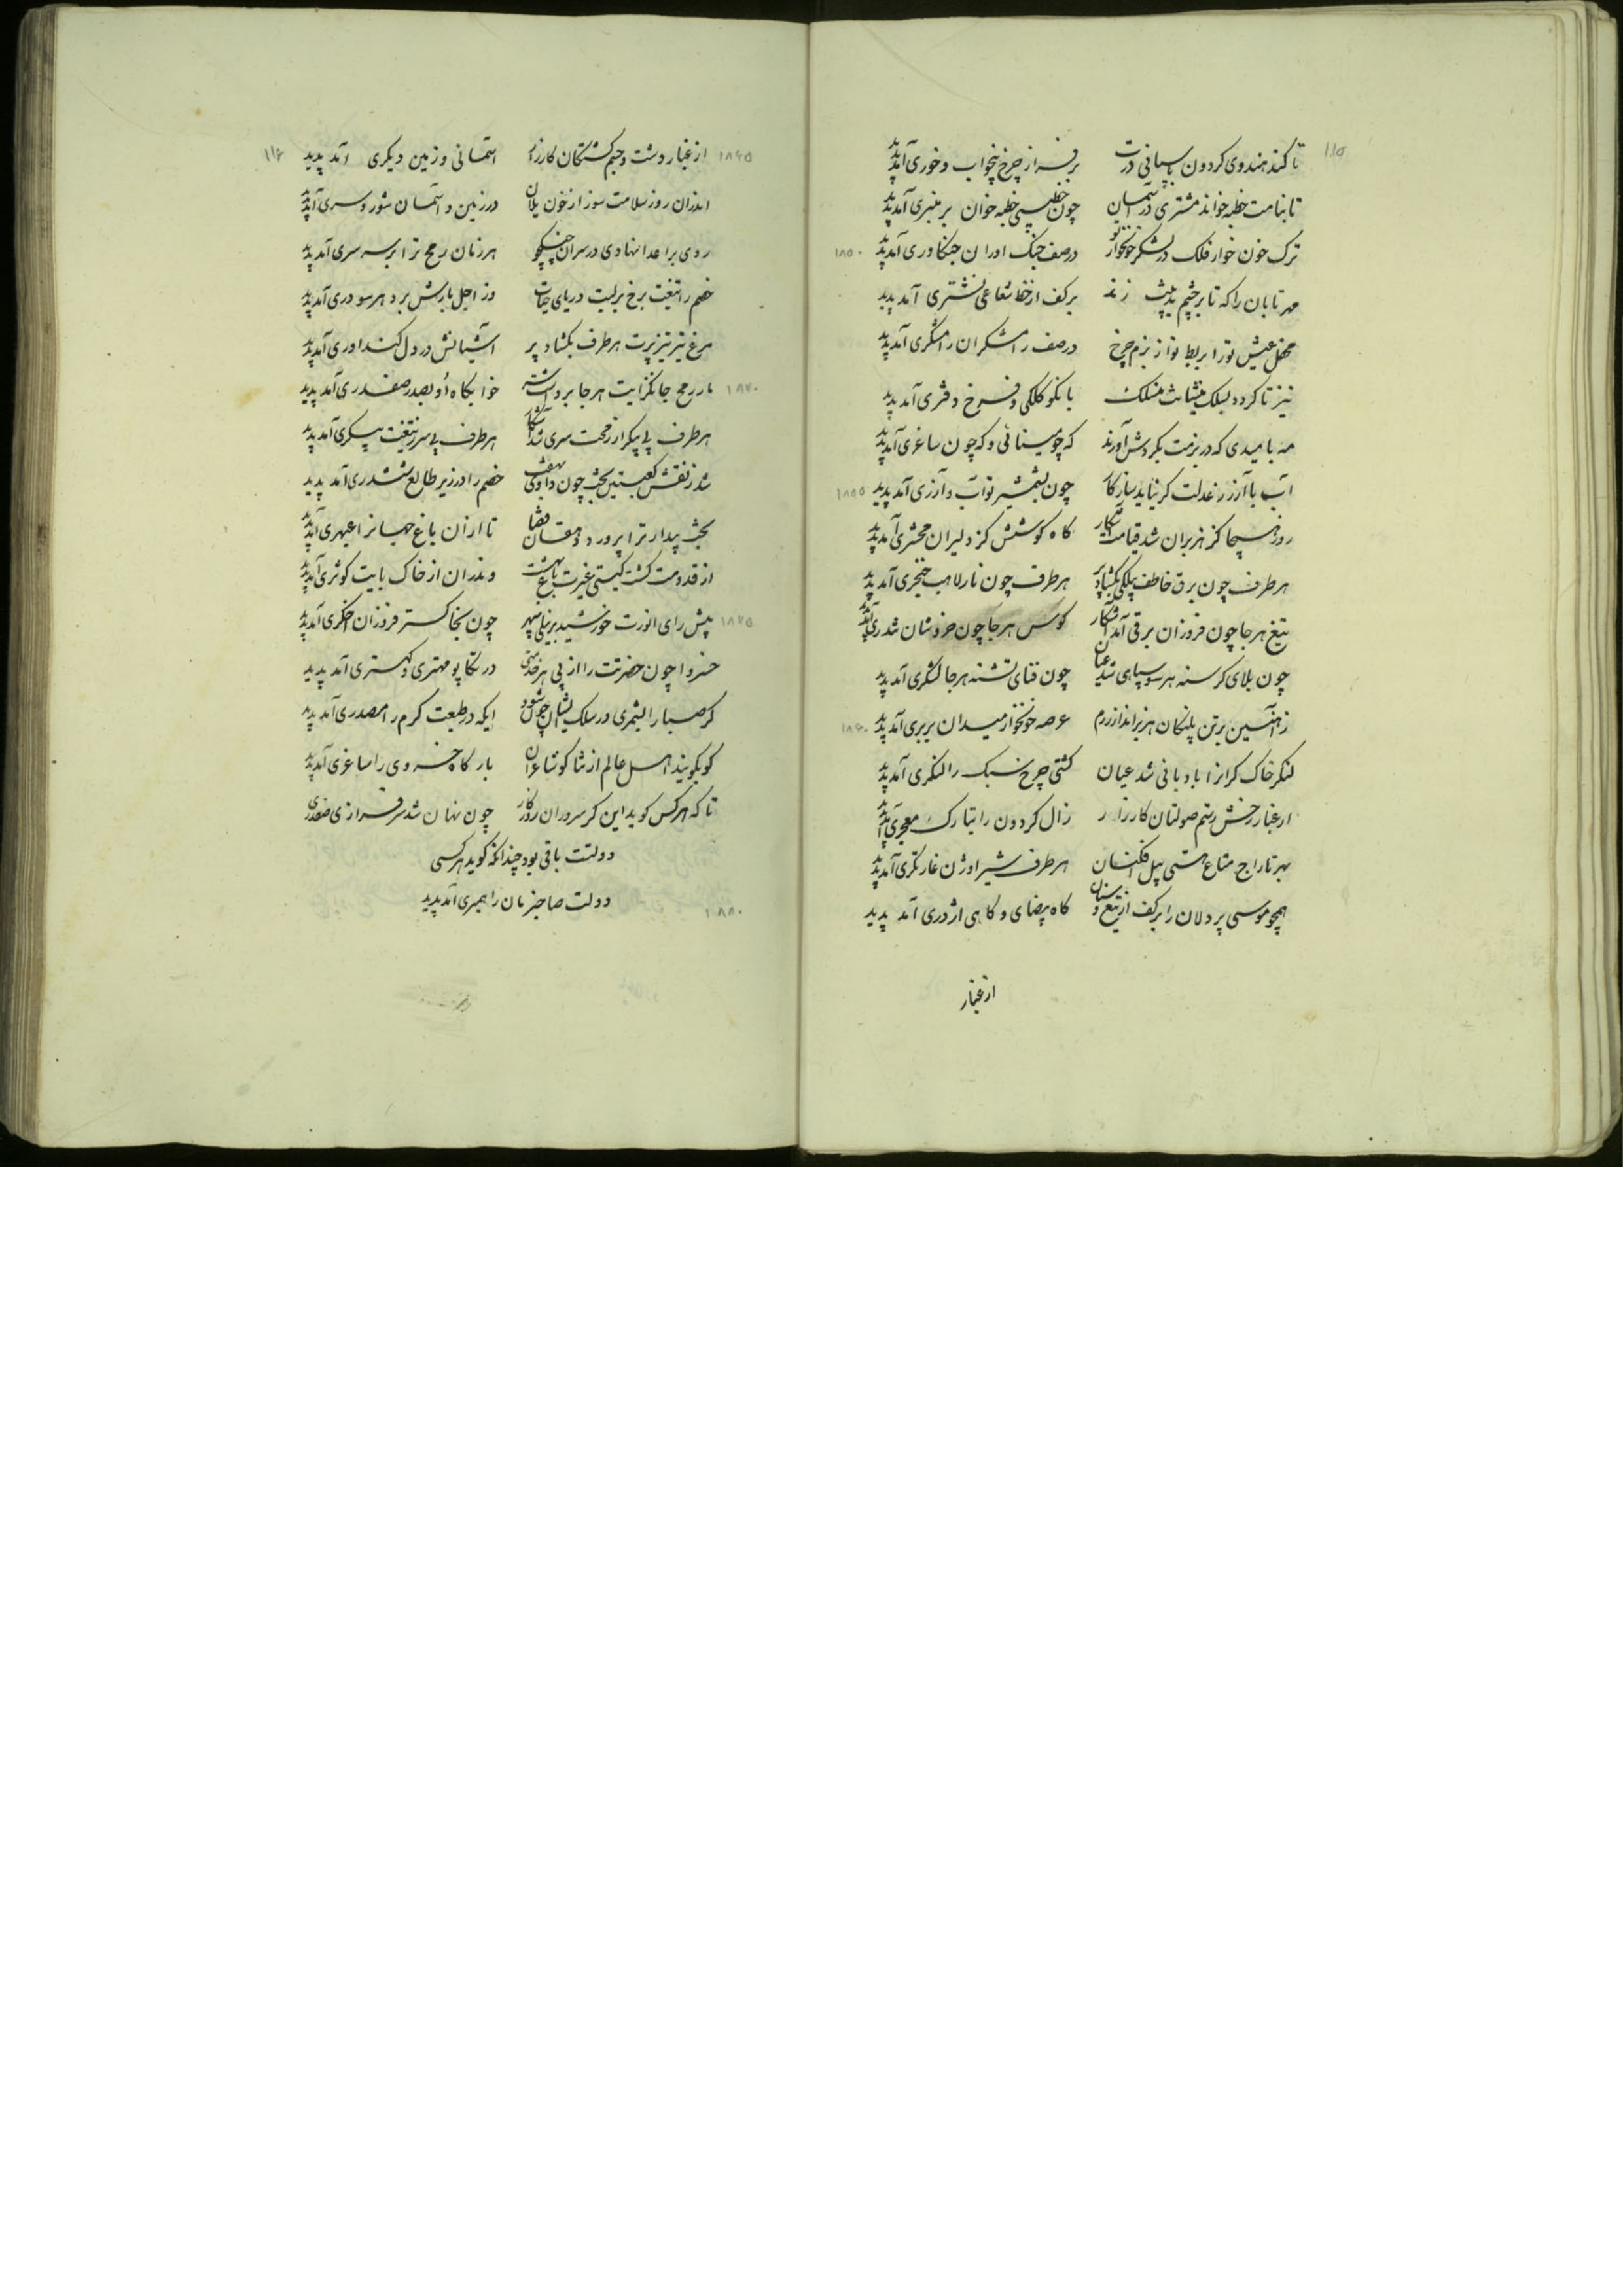 ۱۱۵
تا کند هندوی کردون پاسبانی درت برفراز چرخ بیخواب و خوری آمد پدید
تا بنامت خطبه خواند مشتری در آسمان چون خطیبی خطبه خوان بر منبری آمد پدید
ترک خون خوار فلک در لشکر خونخوار تو در صف جنک اوران جنکاوری آمد پدید ۱۸۵۰
مهر تابان را که تا بر چشم بدبینت زند بر کف از خط شعاعی نشتری آمد پدید
محفل عیش تو را بربط نواز بزم چرخ در صف رامشکران رامشکری آمد پدید
نیز تا کردد بسلک منشیانت منسلک با نکو کلکی و فرخ دفتری آمد پدید
مه بامیدی که در بزمت بکردش آورند که چو مینائی و که چون ساغری آمد پدید
آب با آزر ز عدلت کر نیاید سازکار چون بشمشیر تو آب و آزری آمد پدید ۱۸۵۵
روز هیجا کز هزبران شد قیامت آشکار کاه کوشش کز دلیران محشری آمد پدید
هر طرف چون برق خاطف پیلکی بکشاد پر هر طرف چون نار لاهب خنجری آمد پدید
تیغ هر جا چون فروزان برقی آمد آشکار کوس هر جا چون خروشان تندری آمد پدید
چون بلای کرسنه هر سو سپاهی شد عیان چون قنای تشنه هر جا لشکری آمد پدید
ز آهنین برتن پلنکان هزبر انداز رزم عرصه خونخوار میدان بربری آمد پدید ۱۸۶۰
لنکر خاک کرانرا بادبانی شد عیان کشتی چرخ سبک را لنکری آمد پدید
از غبار رخش رستم صولتان کارزار زال کردون را بتارک معجری آمد پدید
بهر تاراج متاع هستی پیل افکنان هر طرف شیر اوژن غارتکری آمد پدید
همچو موسی پردلان را بر کف از تیغ و سنان کاه بیضای و کاهی اژدری آمد پدید
از غبار
۱۱۶
۱۸۶۵ از غبار دشت و جسم کشتکان کارزار آسمانی و زمین دیکری آمد پدید
اندران روز سلامت سوز از خون یلان در زمین و آسمان شور و سری آمد پدید
روی بر اعدا نهادی در سران جنکجو هر زمان رمح ترا بر سر سری آمد پدید
خصم را تیغت برخ بر بست دریای حیات وز اجل بازش بر د هر سو دری آمد پدید
مرغ تیر تیزپرت هر طرف بکشاد پر آشیانش در دل کنداوری آمد پدید
۱۸۷۰ مار رمح جانکزایت هر جا بر دواشته خوابکاه او بصدر صفدری آمد پدید
هر طرف بی پیکر از رمحت سری شد آشکار هر طرف بی سر ز تیغت پیکری آمد پدید
شد ز نقش کعبتین بخت چون داو تو خصم را در زیر طالع ششدری آمد پدید
بخت بیدار ترا پرورد دهقان قضا تا از آن باغ جهانرا عبهری آمد پدید
از قدومت کشت کیتی غیرت باغ بهشت و ندران از خاک بابت کوثری آمد پدید
۱۸۷۵ پیش رای انورت خورشید بر نیلی سپهر چون بخاکستر فروزان اخکری آمد پدید
خسروا چون حضرتت را از پی هر خدمتی در تکاپو مهتری و کهتری آمد پدید
کر صبا را بشمری در سلک ایشان چون شود ایکه در طبعت کرم را مصدری آمد پدید
کو بکویند اهل عالم از ثنا کو شاعران بارکاه خسروی را ساغری آمد پدید
تا که هر کس کوید این کر سروران روزکار چون نهان شد سرفرازی صفدری
دولتت باقی بود چندانکه کوید هر کسی
۱۸۸۰ دولت صاحبزمان را همبری آمد پدید